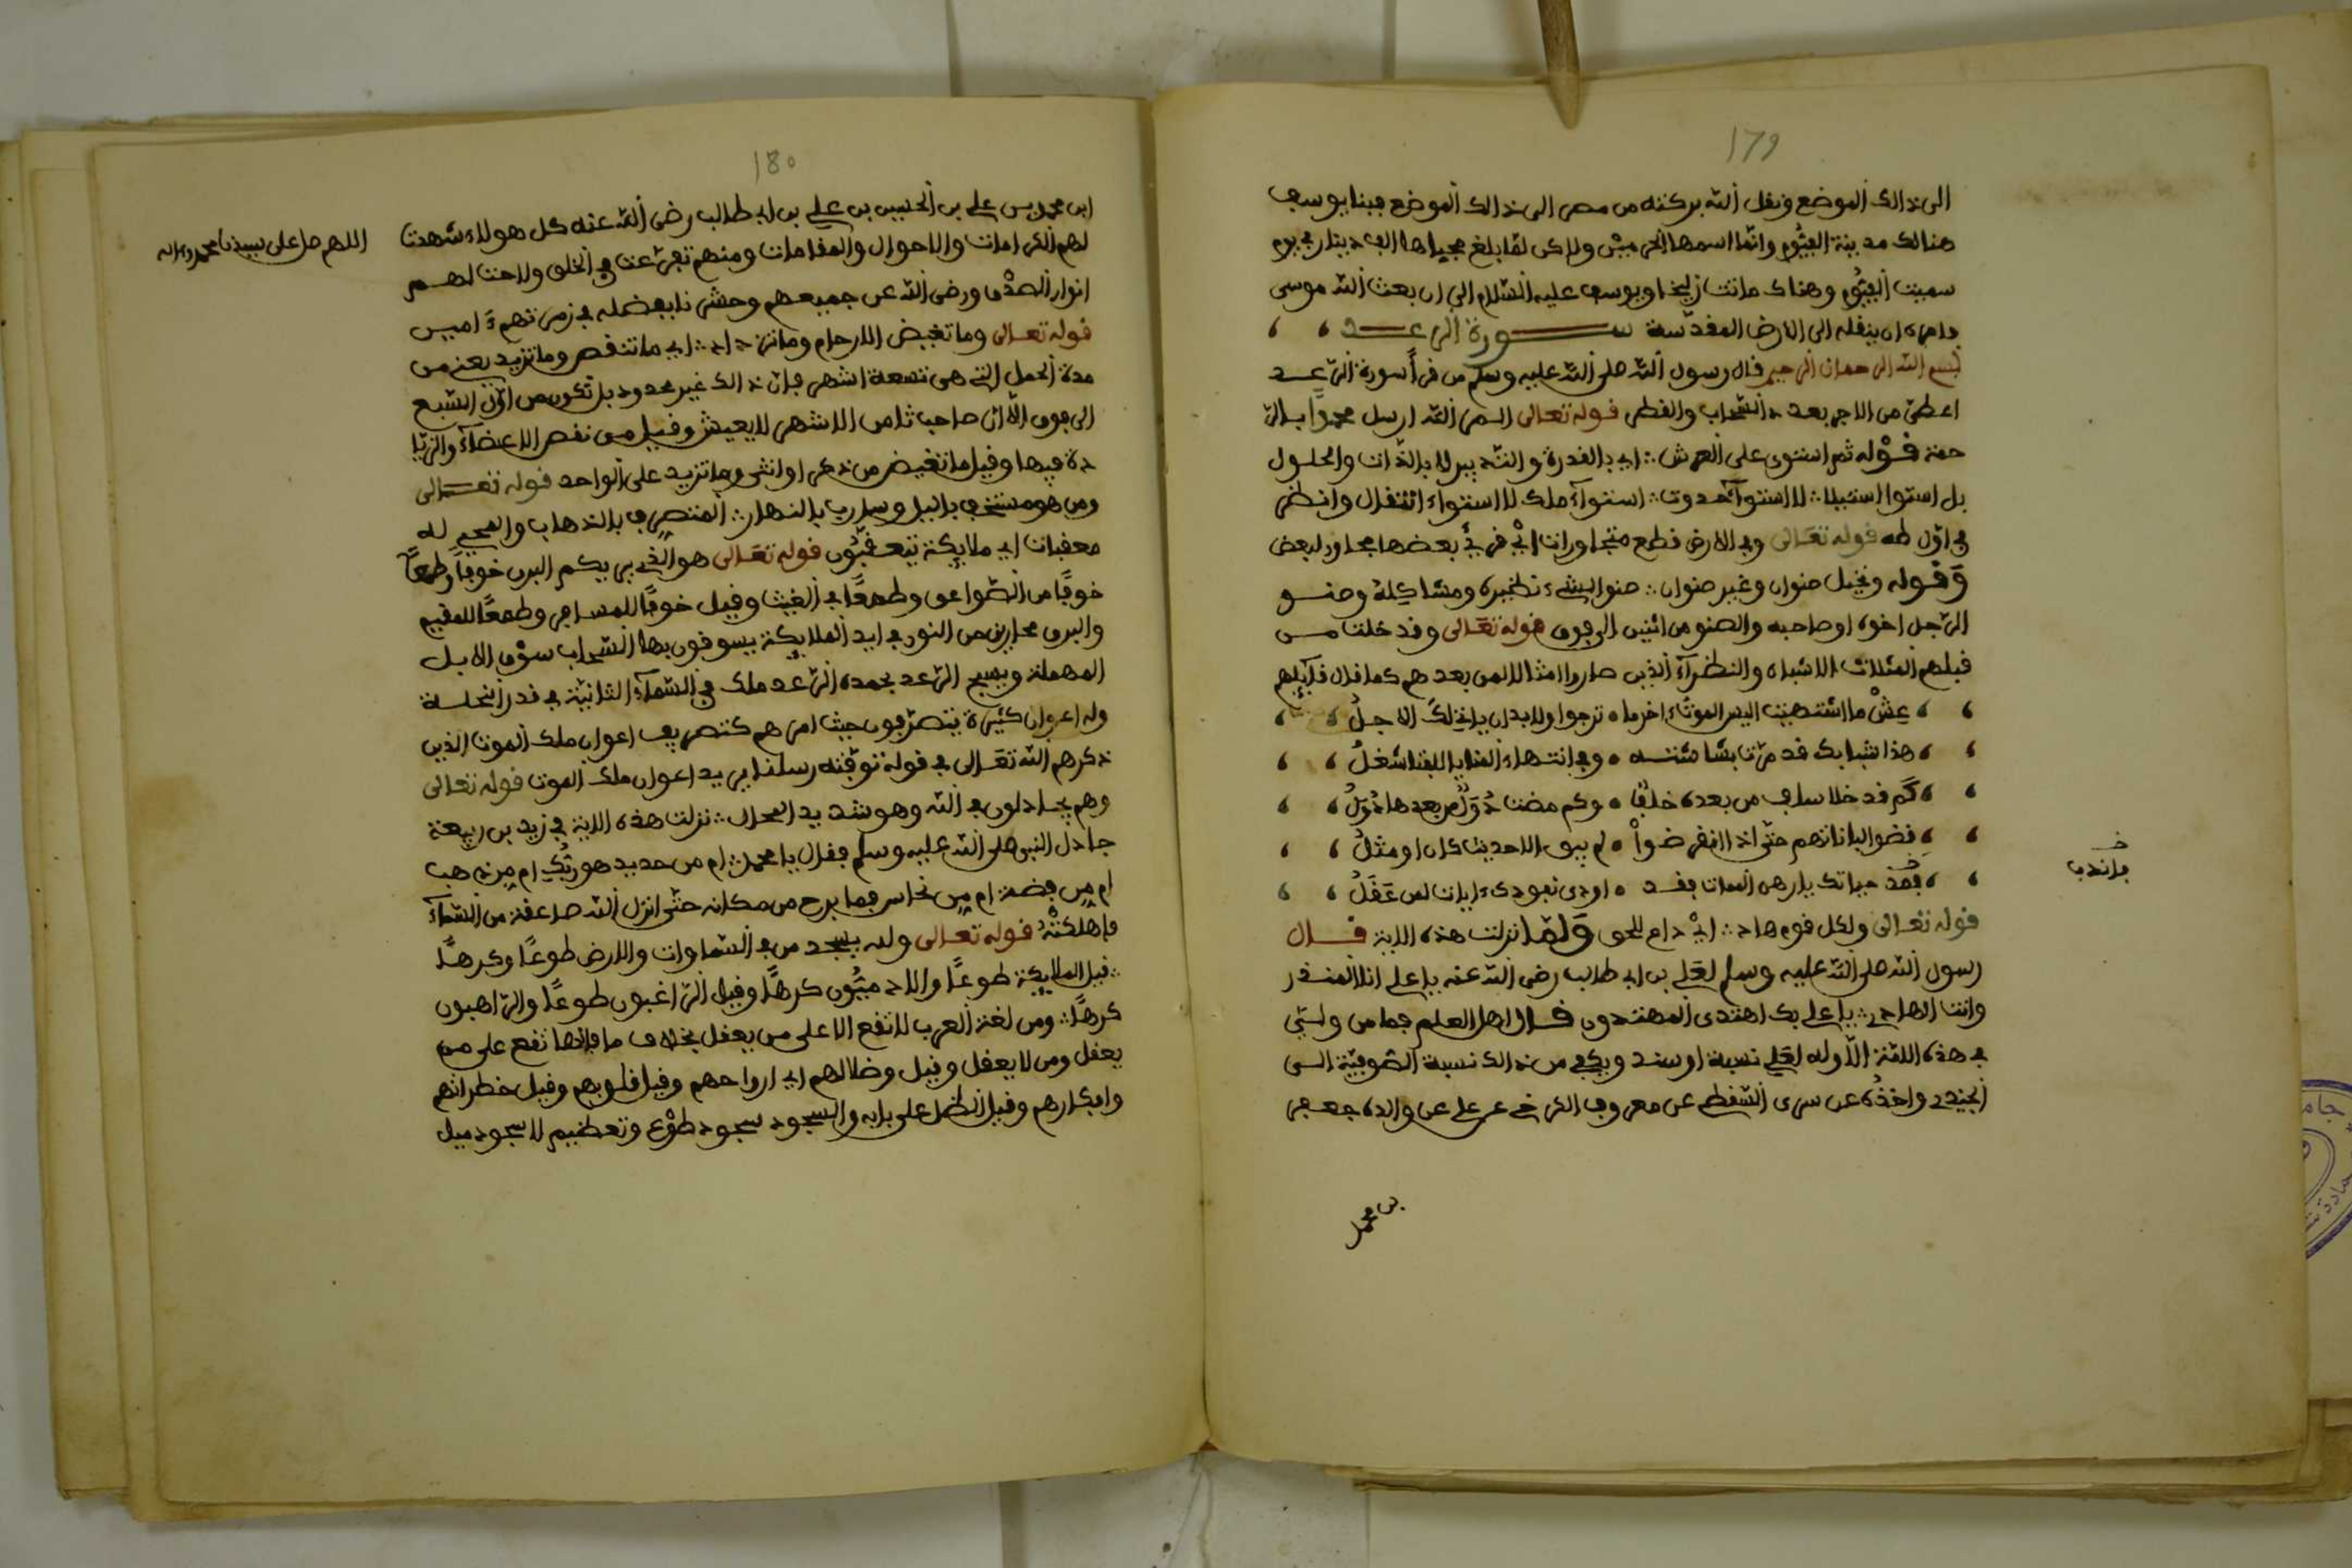 179
الى ذالك الموضع ونقل الله بركته من مصر الى ذالك الموضع فبنا يوسف
هنالك مدينة الفيّوم وانّما اسمها الحرميش ولاكن لمّا بلغ مجباها الف دينار في يوم
سميت الفيّوم وهناك ماتت زليخا ويوسف عليه السّلام الى ان بعث الله موسى
وامره ان ينقله الى الارض المقدّسة ســـورة الرعــد
بسم الله الرحمان الرحيم قال رسول الله صلى الله عليه وسلم من قرأ سورة الرّعــد
اعطي من الاجر بعدد السّحاب والقطر قوله تعالى المر الله ارسل محمدًا بالر
حمة قوله ثم استوى على العرش ∴ اي بالقدرة والتدبير لا بالذّات والحلول
بل استوا استيلا ∴ لا استوآء حدوث ∴ استوآء ملك لا استواء انتقال وانظر
في اوّل طه قوله تعالى وفي الارض قطع متجاورات اي قرى بعضها مجاور لبعض
وقوله ونخيل صنوان وغير صنوان ∴ صنو الشيء نظيره ومشاكله وصنــو
الرّجل اخوه او صاحبه والصنو من اثنين الى فوق قوله تعالى وقد خلت مــن
قبلهم المثلات الاشباه والنظرآء الذين صاروا امثالا لمن بعدهم كما قال قآيلهم
، ، عِشْ ما اشتهيت اليس الموت ءاخر ما ه ترجوا ولا بد ان ياتي لك الاجلُ ، ،
، ، هذا شبابك قد مرّت بشاشتــه ه وفي انتهاء المنايا للفتا شغلُ ، ،
، ، كم قد خلا سلف من بعده خلفًا ه وكم مضت دُوَلٌ من بعدها دُوَلُ ، ،
، ، قضوا لباناتهم حتّى اذا انقرضواْ ه لم يبق الا حديث كان او مثلُ ، ،
، ، فعُدّ حياتك يا رهن الممات فقــد ه اودى نعودىء ايات لمن عَقَلُ ، ،
خـ
فاندب
قوله تعالى ولكل قوم هاد ∴ ايْ داع للحق ولمّا نزلت هذه الاية قــال
رسول الله صلى الله عليه وسلم لعلي بن ابي طالب رضي الله عنه يا علي انا المنــذر
وانت الهادي ∴ يا علي بك اهتدى المهتدون قــال اهل العلم فما من ولــيّ
في هذه الامّة الّا وله لعلي نسبة او سند ويكفي من ذالك نسبة الصّوفيّة الــى
الجنيد واخذُه عن سرى السّقطي عن معروف الكرخي عن علي عن والده جعفر
بن محمد
180
ابن محمد بن علي بن الحسين بن علي بن ابي طالب رضي الله عنه كل هولاء شهدت
اللهم صل على سيدنا محمد وءاله
لهم الكرامات والاحوال والمقامات ومنهم تفرّعت في الخلق ولاحت لهــم
انوار الصدْق ورضي الله عن جميعهم وحشرنا بفضله في زمرتهم ءامين
قوله تعالى وما تغيض الارحام وما تزداد ∴ اي ما تنقص وما تزيد يعني من
مدة الحمل التي هي تسعة اشهر فان ذالك غير محدود بل تكون من اوّل السّبع
الى فوق الّا ان صاحب ثامن الاشهر لا يعيش وقيل من نقص الاعضآء والزّيا
دة فيها وقيل ما تغيض من ذكر او انثى وما تزيد على الواحد قوله تعــالى
ومن هو مستخف باليل وسارب بالنهار ∴ المنتصرف بالذهاب والمجي له
معقبات اي ملايكة يتعقبون قوله تعالى هو الذي يريكم البرق خوفًا وطمعًا
خوفًا من الصّواعق وطمعًا في الغيث وقيل خوفًا للمسافر وطمعًا للمقيم
والبرق مخاريق من النور في ايد الملايكة يسوقون بها السّحاب سوْق الابــل
المهملة ويسبح الرّعد بحمده الرّعد ملك في السّمآء الثانية في قدر النحلــة
وله اعوان كثيرة يتصرّفون حيث امرهم كتصريف اعوان ملك الموت الذين
ذكرهم الله تعالى في قوله توفّته رسلنا يريد اعوان ملك الموت قوله تعالى
وهم يجادلون في الله وهو شديد المحال ∴ نزلت هذه الاية في زيد بن ربيعة
جادل النبي صلى الله عليه وسلم فقال يا محمد ∴ ام من حديد هو ربّك ام مِن ذهب
ام مِن فضة ام مِن نحاس فما برح من مكانه حتّى انزل الله صاعقة من السّمآء
فاهلكتْهُ قوله تعالى ولله يسجد من في السّماوات والارض طوعًا وكرهًا
∴ قيل الملايكة طوعًا والادميّون كرهًا وقيل الرّاغبون طوعًا والرّاهبون
كرهًا ∴ ومن لغة العرب لا تقع الا على من يعقل بخلاف ما فانها تقع على من
يعقل ومن لا يعقل وقيل وضلالهم اي ارواحهم وقيل قلوبهم وقيل خطراتهم
وافكارهم وقيل الظل على بابه والسجود سجود طوْع وتعظيم لا سجود ميل